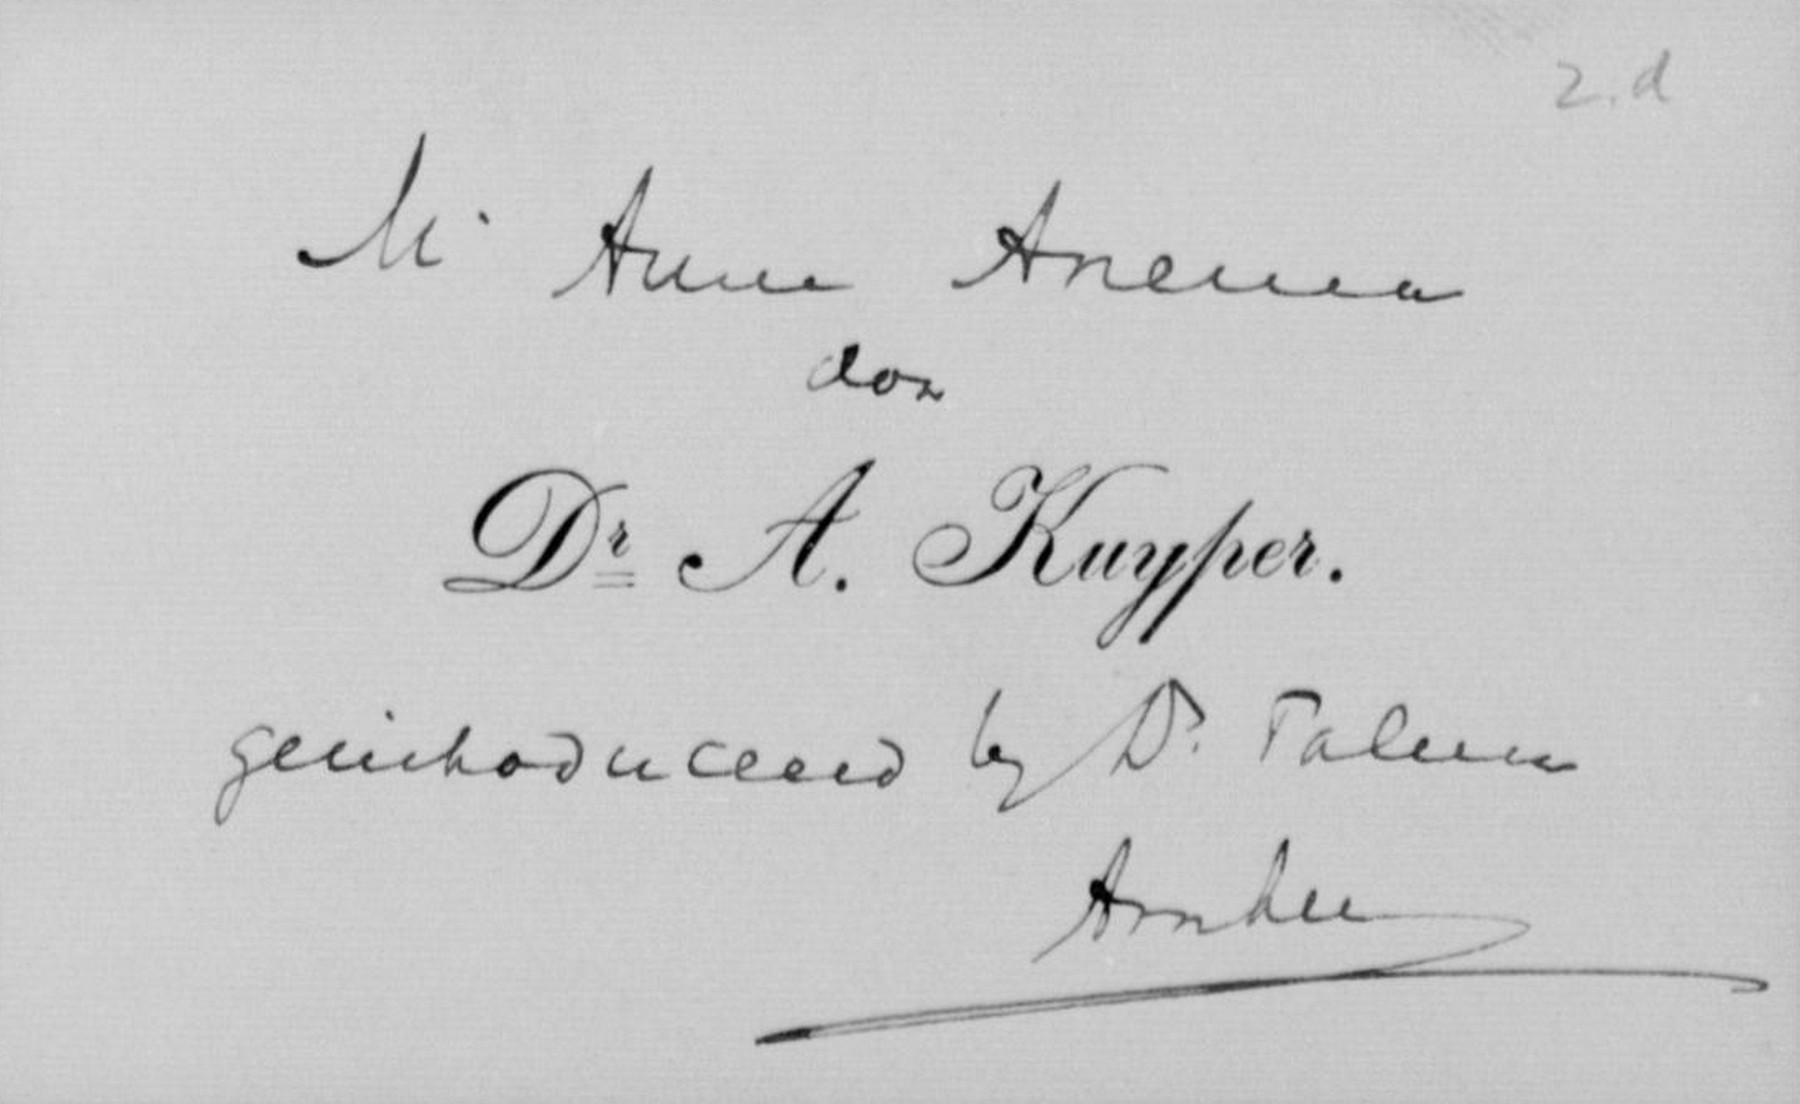 z.d
Mr. Anne Anema
door
Dr. A. Kuyper.
geintroduceerd by Dr. Talma
Arnhem